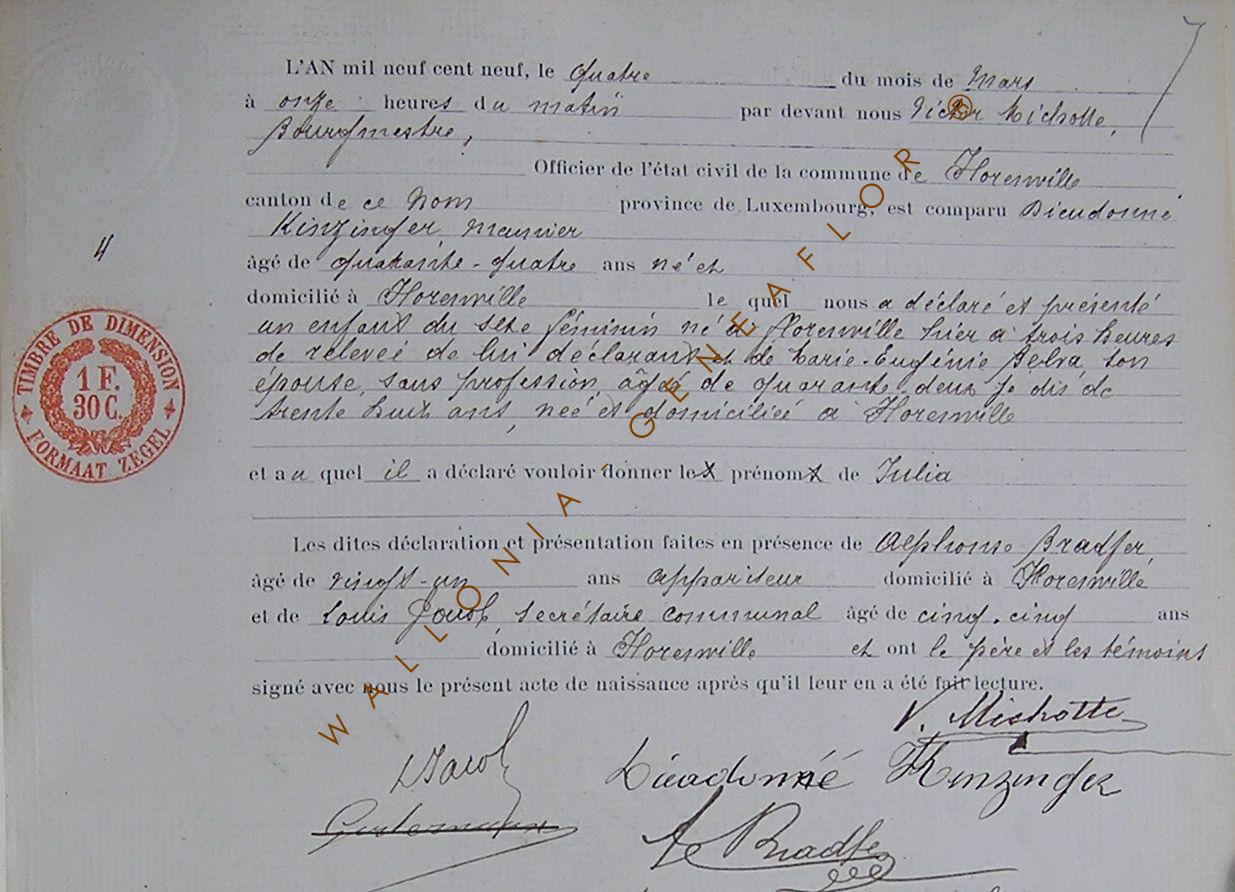 L'AN mil neuf cent neuf, le quatre du mois de Mars
à onze heures du matin par devant nous Victor Michotte,
Bourgmestre,
Officier de l'état civil de la commune de Florenville
canton de ce Nom province de Luxembourg, est comparu Dieudonné
Kinzinger, meunier
âgé de quarante-quatre ans né et
domicilié à Florenville le quel nous a déclaré et présenté
un enfant du sexe féminin né à Florenville hier à trois heures
de relevée de lui déclarant et de Marie-Eugénie Selva, son
épouse, sans profession, âgée de quarante-deux je dis de
trente huit ans, née et domiciliée à Florenville
4
TIMBRE DE DIMENSION
1 F.
30 C.
FORMAAT ZEGEL
et au quel il a déclaré vouloir donner le prénom de Julia
Les dites déclaration et présentation faites en présence de Alphonse Bradfer,
âgé de vingt-un ans appariteur domicilié à Florenville
et de Louis Jacob, secrétaire communal âgé de cinq.cinq ans
domicilié à Florenville et ont le père et les témoins
signé avec nous le présent acte de naissance après qu'il leur en a été fait lecture.
V. Michotte
LJacob Dieudonné Kinzinger
A Bradfer
WALLONIA GENEAFLOR ®